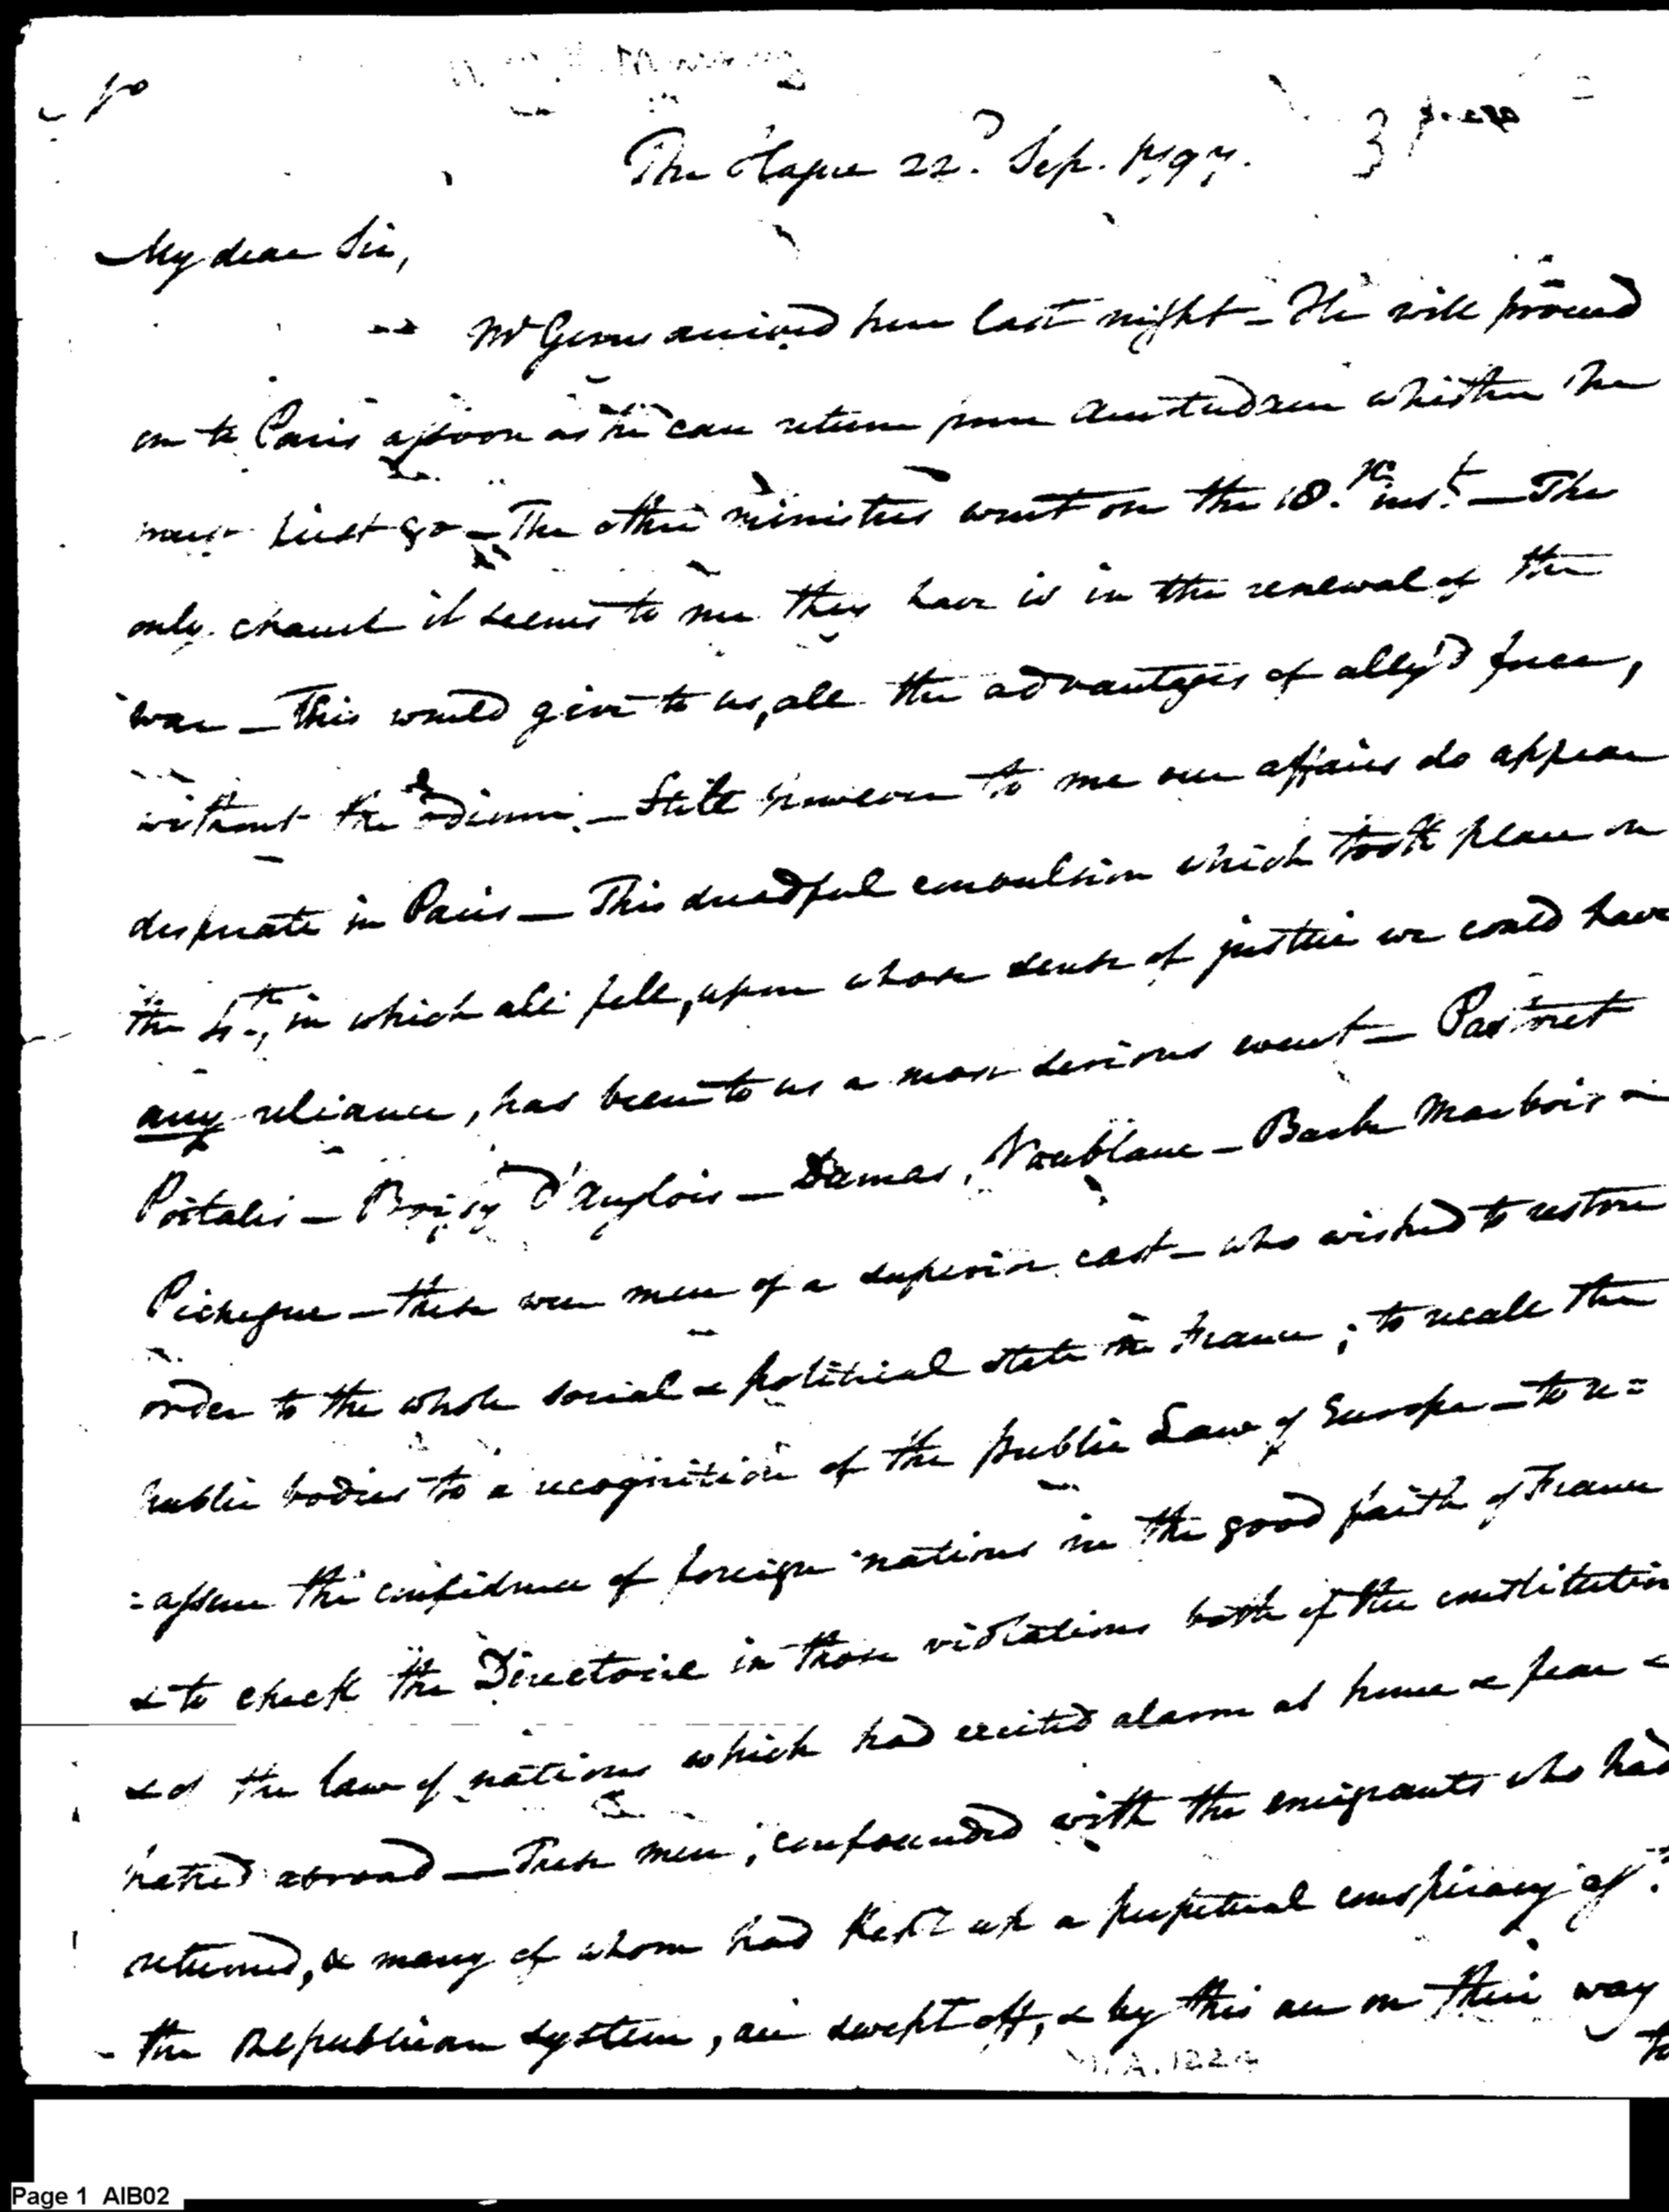 The Hague 22.d Sep. 1797.
My dear Sir,
Mr Gerry arrived here last night – He will proceed
on to Paris assoon as he can return from Amsterdam whither he
must first go – The other ministers went on the 18.th inst – The
only chance it seems to me they have is in the renewal of the
war – This would give to us, all the advantages of ally'd force,
without the odium. – Still however to me our affairs do appear
desperate in Paris – This dreadful convulsion which took place on
the 4th, in which all fell, upon whose sense of justice we could have
any reliance, has been to us a most serious event – Pastoret
Portalis – Boissy D'Anglois – Dumas, Vaublanc – Barbe Marbois –
Pichegru – these were men of a superior cast – who wished to restore
order to the whole social & political state in France; to recall the
public bodies to a recognition of the public Law of Europe – to re=
=assure the confidence of foreign nations in the good faith of France
& to check the Directoire in those violations both of the constitution
& of the law of nations which had excited alarm at home & fear &
hatred abroad – These men, confounded with the emigrants who had
returned, & many of whom had kept up a perpetual conspiracy agt.
the Republican system, are swept off, & by this are on their way
to
Page 1 AIB02